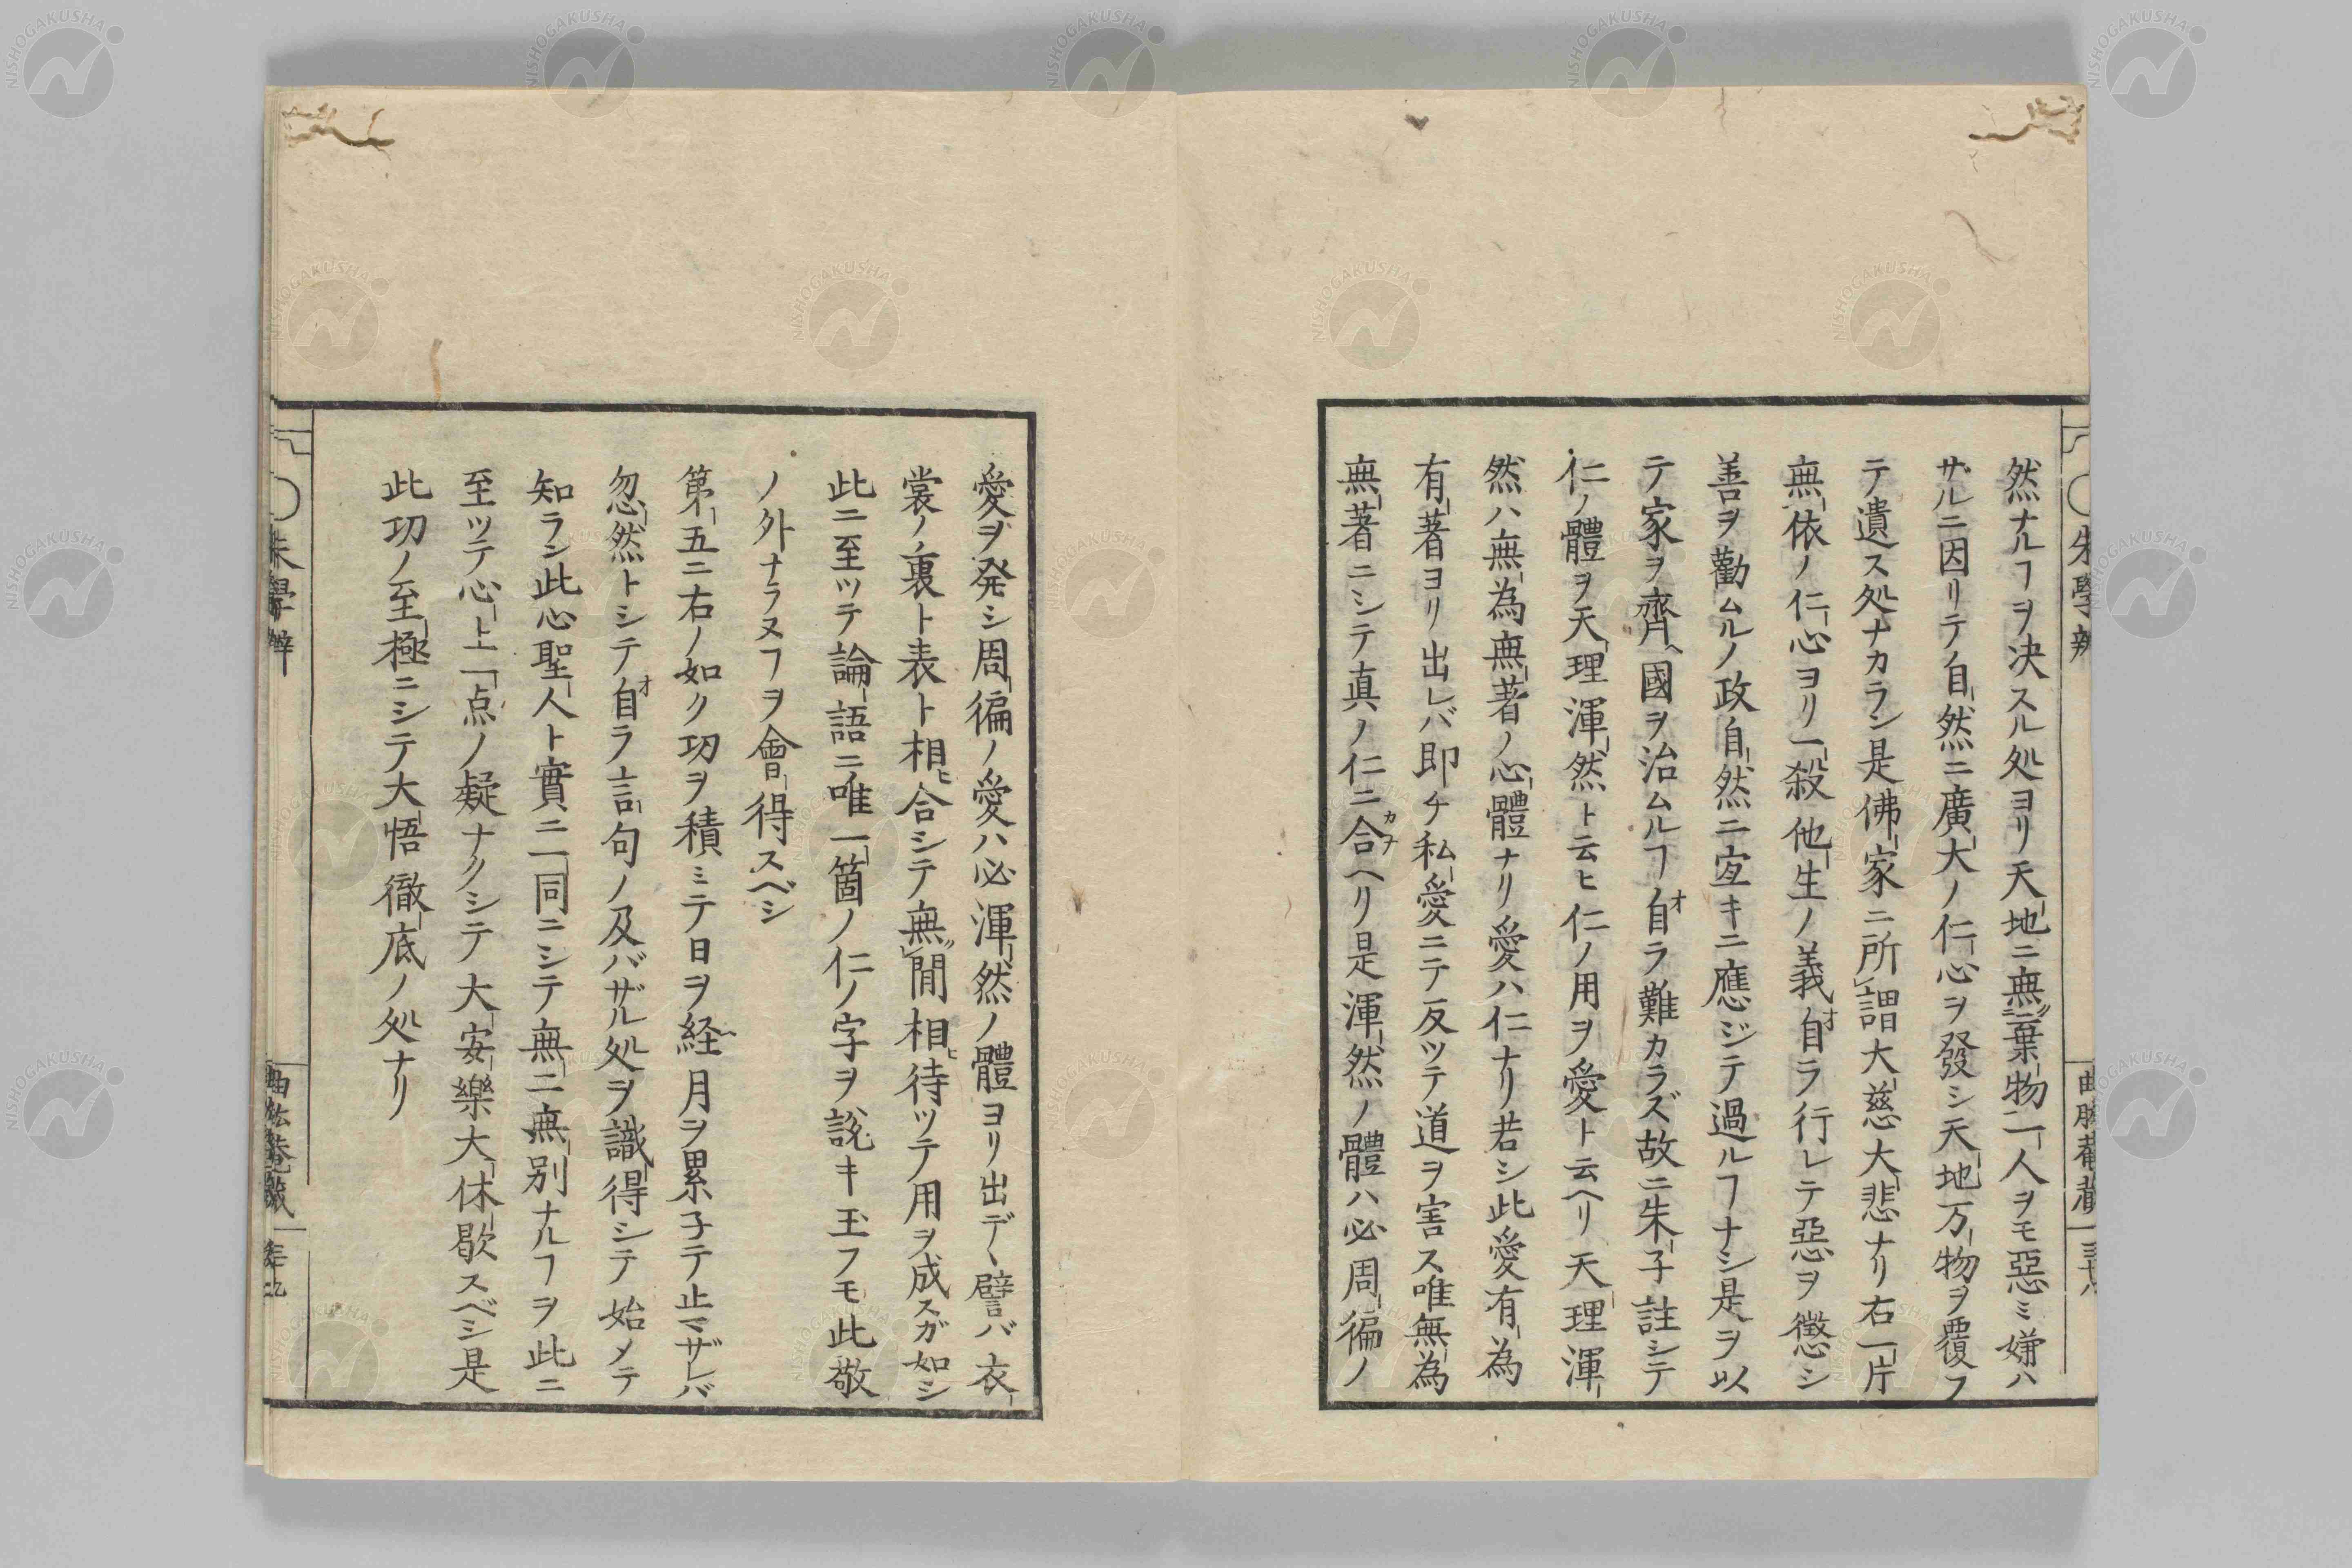 然ナルヿヲ決スル処ヨリ天地ニ無棄物一人ヲモ惡ミ嫌ハ
ザルニ因リテ自然ニ廣大ノ仁心ヲ發シ天地万物ヲ覆フ
テ遺ス処ナカラン是佛家ニ所謂大慈大悲ナリ右一片
無依ノ仁心ヨリ一殺他生ノ義自ラ行レテ惡ヲ懲シ
善ヲ勸ムルノ政自然ニ宜キニ應ジテ過ルヿナシ是ヲ以
テ家ヲ齊ヘ國ヲ治ムルヿ自ラ難カラズ故ニ朱子註シテ
仁ノ體ヲ天理渾然ト云ヒ仁ノ用ヲ愛ト云ヘリ天理渾
然ハ無為無著ノ心體ナリ愛ハ仁ナリ若シ此愛有為
有著ヨリ出レバ即チ私愛ニテ反ツテ道ヲ害ス唯無為
無著ニシテ真ノ仁ニ合ヘリ是渾然ノ體ハ必周徧ノ
愛ヲ発シ周徧ノ愛ハ必渾然ノ體ヨリ出デヽ譬バ衣
裳ノ裏ト表ト相ヒ合シテ無間相ヒ待ツテ用ヲ成スガ如シ
此ニ至ツテ論語ニ唯一箇ノ仁ノ字ヲ説キ玉フモ此敬
ノ外ナラヌヿヲ會得スベシ
第五ニ右ノ如ク功ヲ積ミテ日ヲ経月ヲ累子テ止マザレバ
忽然トシテ自ラ言句ノ及バザル処ヲ識得シテ始メテ
知ラン此心聖人ト實ニ一同ニシテ無二無別ナルヿヲ此ニ
至ツテ心上一点ノ疑ナクシテ大安樂大休歇スベシ是
此功ノ至極ニシテ大悟徹底ノ処ナリ
朱學辨
NISHOGAKUSHA